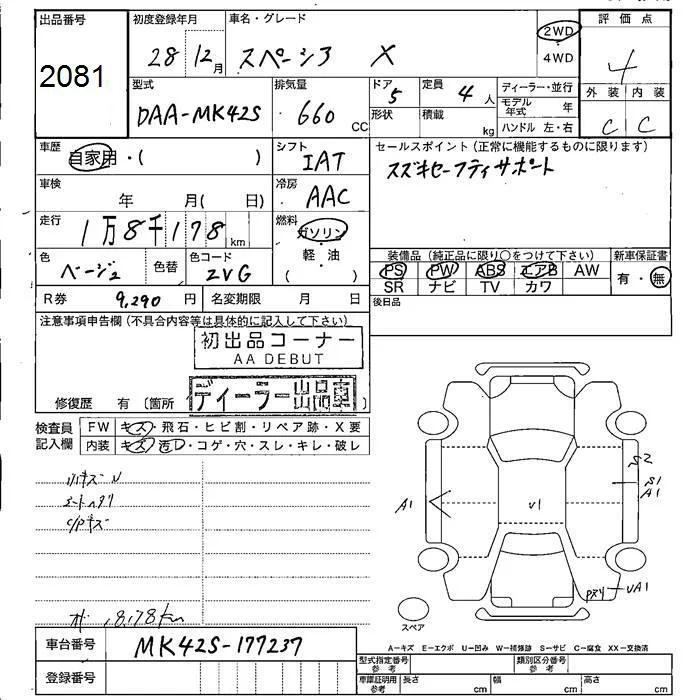 出品番号
2081
初度登録年月
28 12月
車名・グレード
スペーシア X
2WD
4WD
評価点
4
外装 内装
C C
型式
DAA-MK42S
排気量
660 CC
ドア
5
形状
定員
4 人
積載
kg
ディーラー・並行
モデル年式 年
ハンドル 左・右
車歴
自家用・( )
シフト
IAT
セールスポイント(正常に機能するものに限ります)
スズキセーフティサポート
車検
年 月( 日)
冷房
AAC
走行
1万8千178 km
燃料
ガソリン
軽・油
( )
色
ベージュ
色替
色コード
ZVG
装備品(純正品に限り○をつけて下さい)
PS PW ABS エアB AW
SR ナビ TV カワ
新車保証書
有・無
R券 9,290 円
名変期限 月 日
後日品
注意事項申告欄(不具合内容等は具体的に記入して下さい)
初出品コーナー
AA DEBUT
ディーラー出品車
修復歴 有〔箇所 〕
検査員記入欄
FW キズ・飛石・ヒビ割・リペア跡・X要
内装 キズ・汚レ・コゲ・穴・スレ・キレ・破レ
シートヘタリ
C/Pキズ
18,178km
A1
U1
S2
S1
A1
UA1
スペア
A−キズ E−エクボ U−凹み W−補修跡 S−サビ C−腐食 XX−交換済
車台番号
MK42S-177237
登録番号
型式指定番号参考
類別区分番号参考
車庫証明用参考
長さ cm
幅 cm
高さ cm